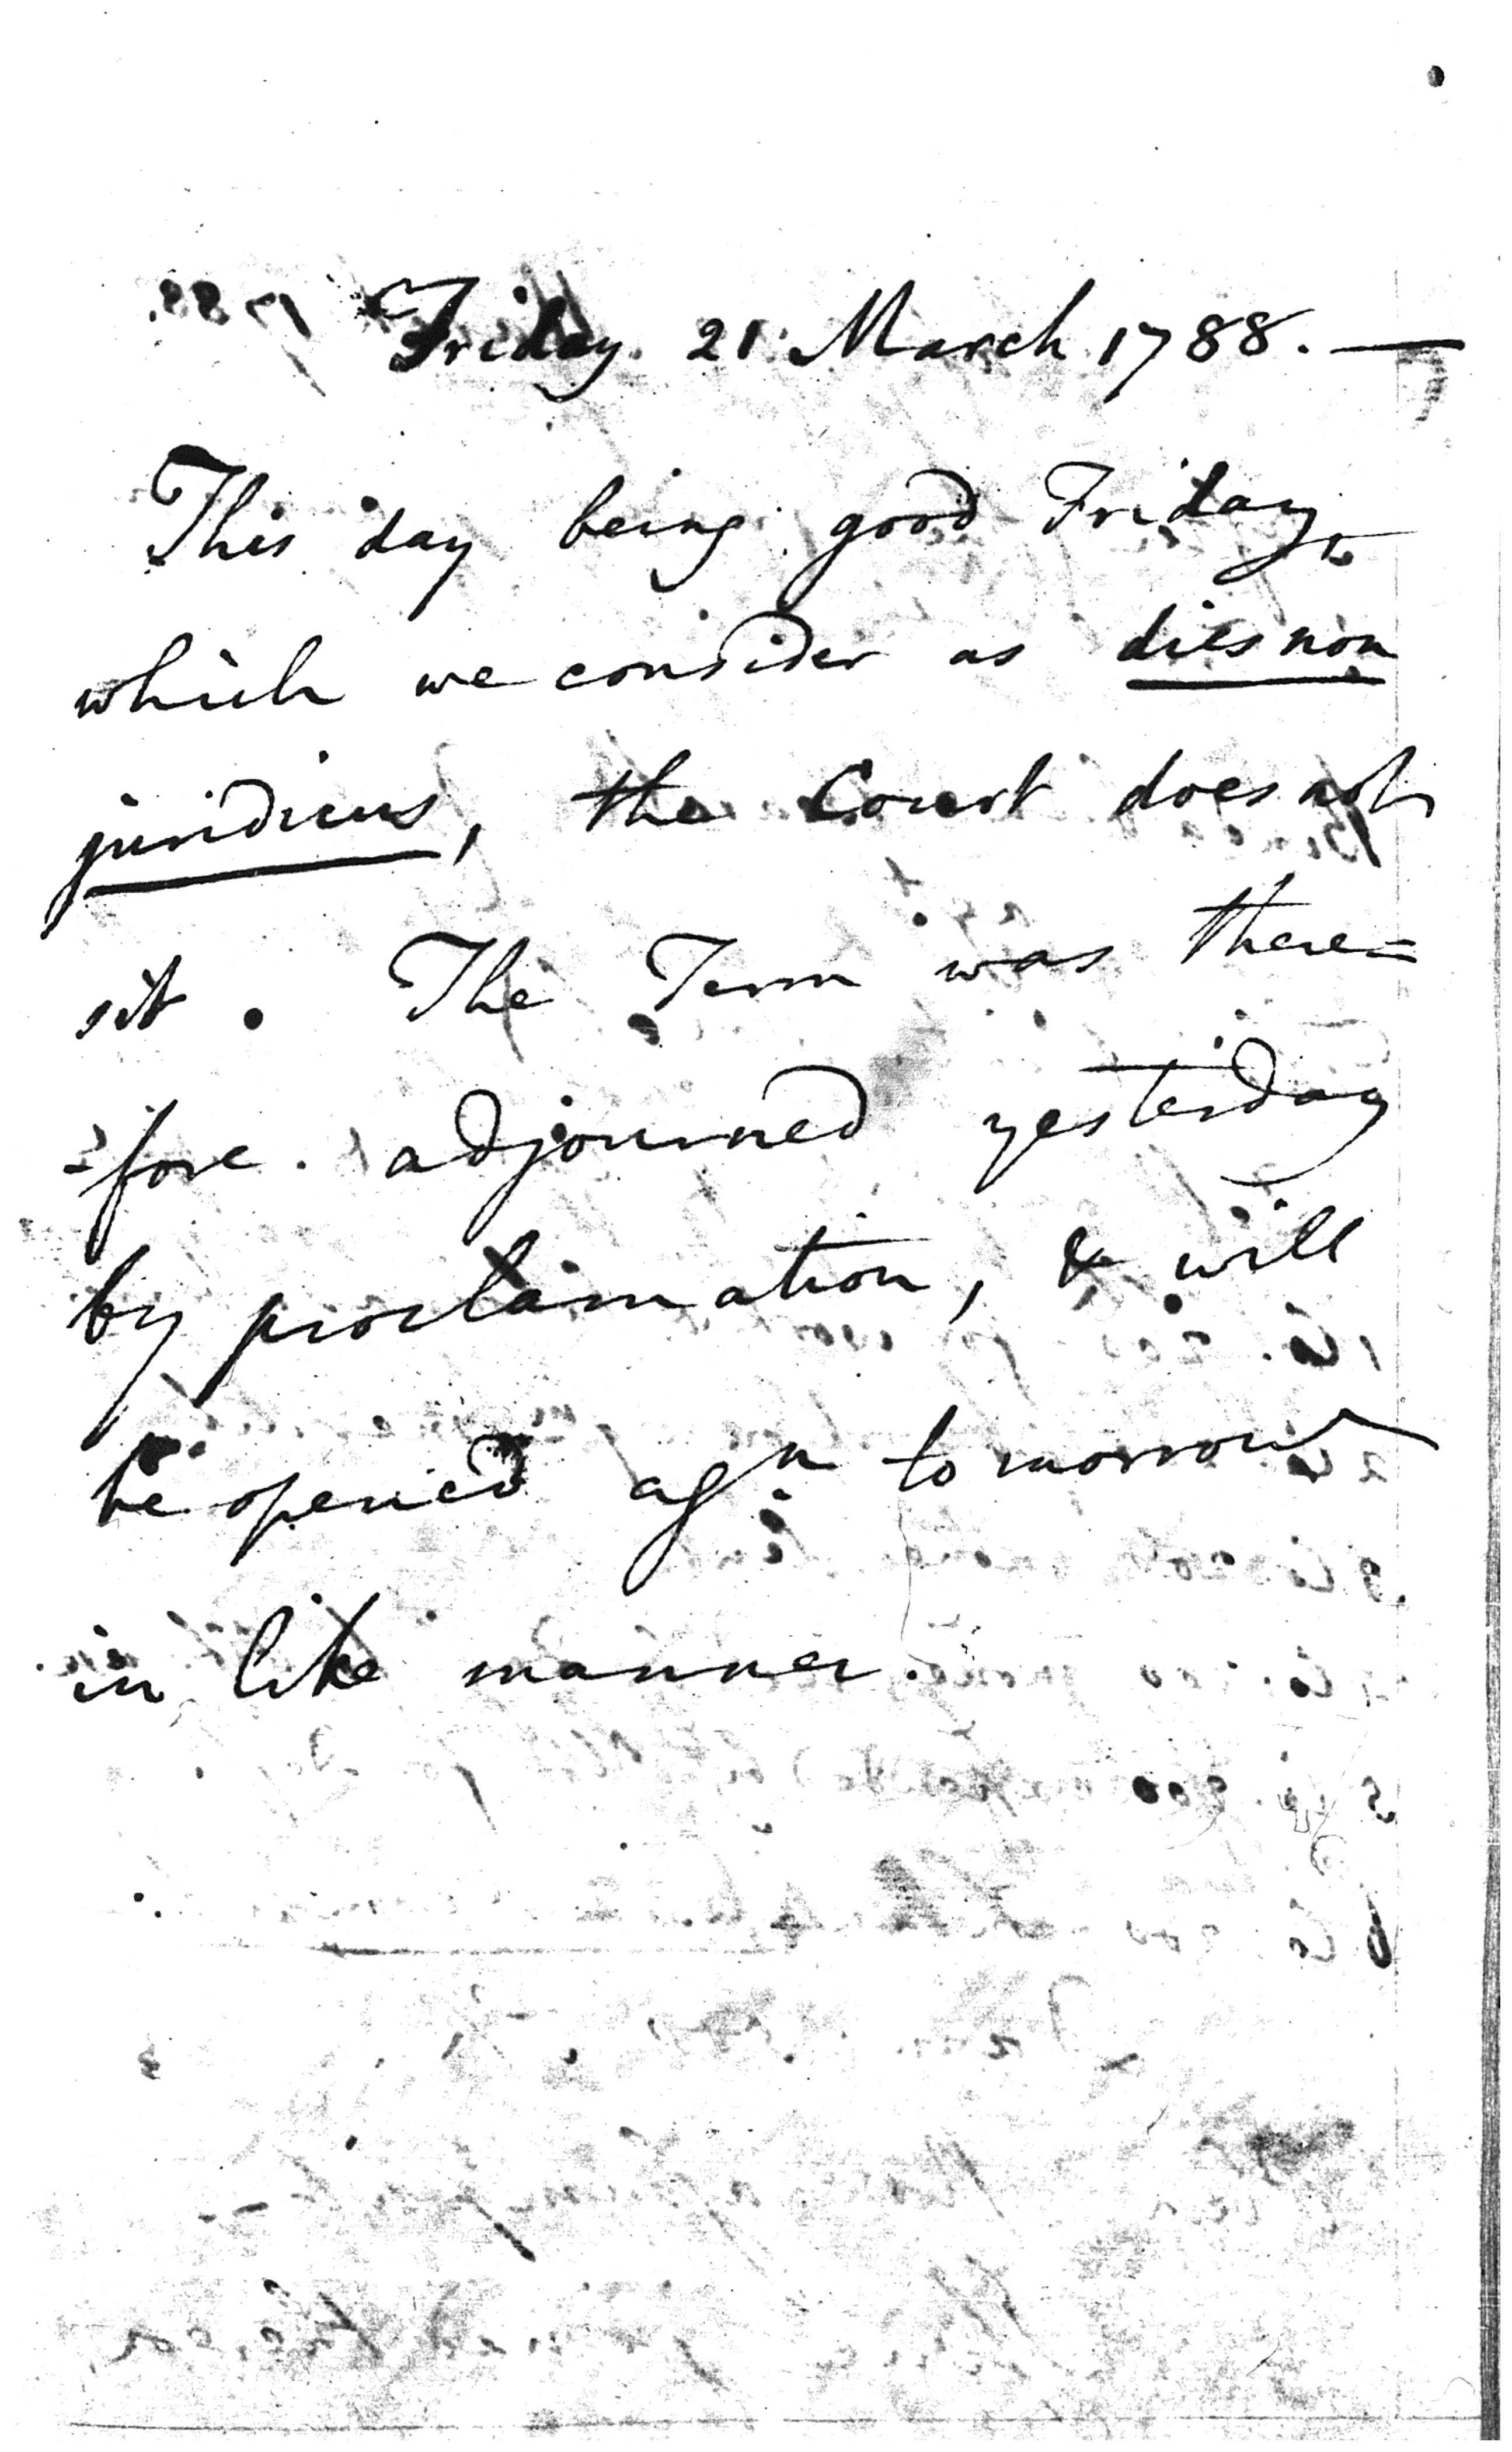 Friday. 21. March 1788. —
This day being good Friday,
which we consider as dies non
juridicus, the Court does not
sit. The Term was there=
=fore adjourned yesterday
by proclamation, & will
be opened agn. tomorrow
in like manner.